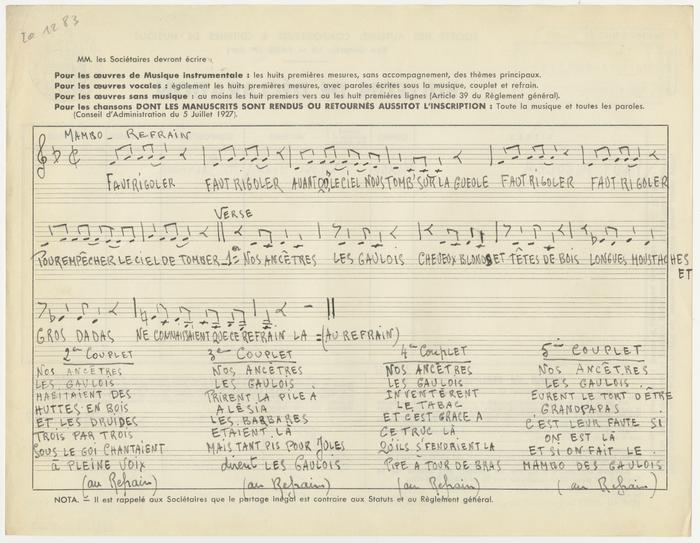 20 12 83
MM. les Sociétaires devront écrire
Pour les œuvres de Musique instrumentale : les huits premières mesures, sans accompagnement, des thèmes principaux.
Pour les œuvres vocales : également les huits premières mesures, avec paroles écrites sous la musique, couplet et refrain.
Pour les œuvres sans musique : au moins les huit premiers vers ou les huit premières lignes (Article 39 du Règlement général).
Pour les chansons DONT LES MANUSCRITS SONT RENDUS OU RETOURNÉS AUSSITOT L'INSCRIPTION : Toute la musique et toutes les paroles.
(Conseil d'Administration du 5 Juillet 1927).
MAMBO - REFRAIN
FAUT RIGOLER FAUT RIGOLER AVANT QU'LE CIEL NOUS TOMB' SUR LA GUEULE FAUT RIGOLER FAUT RIGOLER
VERSE
POUR EMPÊCHER LE CIEL DE TOMBER 1er NOS ANCÊTRES LES GAULOIS CHEVEUX BLONDS ET TÊTES DE BOIS LONGUES MOUSTACHES
ET
GROS DADAS NE CONNAISSAIENT QUE CE REFRAIN LA = (AU REFRAIN)
2e COUPLET
NOS ANCÊTRES
LES GAULOIS
HABITAIENT DES
HUTTES EN BOIS
ET LES DRUIDES
TROIS PAR TROIS
SOUS LE GUI CHANTAIENT
À PLEINE VOIX
(au Refrain)
3e COUPLET
NOS ANCÊTRES
LES GAULOIS
PRIRENT LA PILE À
ALÉSIA
LES BARBARES
ETAIENT LÀ
MAIS TANT PIS POUR JULES
dirent LES GAULOIS
(au Refrain)
4e COUPLET
NOS ANCÊTRES
LES GAULOIS
INVENTÈRENT
LE TABAC
ET C'EST GRACE A
CE TRUC LÀ
QU'ILS S'FENDRIENT LA
PIPE A TOUR DE BRAS
(au Refrain)
5e COUPLET
NOS ANCÊTRES
LES GAULOIS
EURENT LE TORT D'ÊTRE
GRANDPAPAS
C'EST LEUR FAUTE SI
ON EST LÀ
ET SI ON FAIT LE
MAMBO DES GAULOIS
(au Refrain)
NOTA. — Il est rappelé aux Sociétaires que le partage inégal est contraire aux Statuts et au Règlement général.